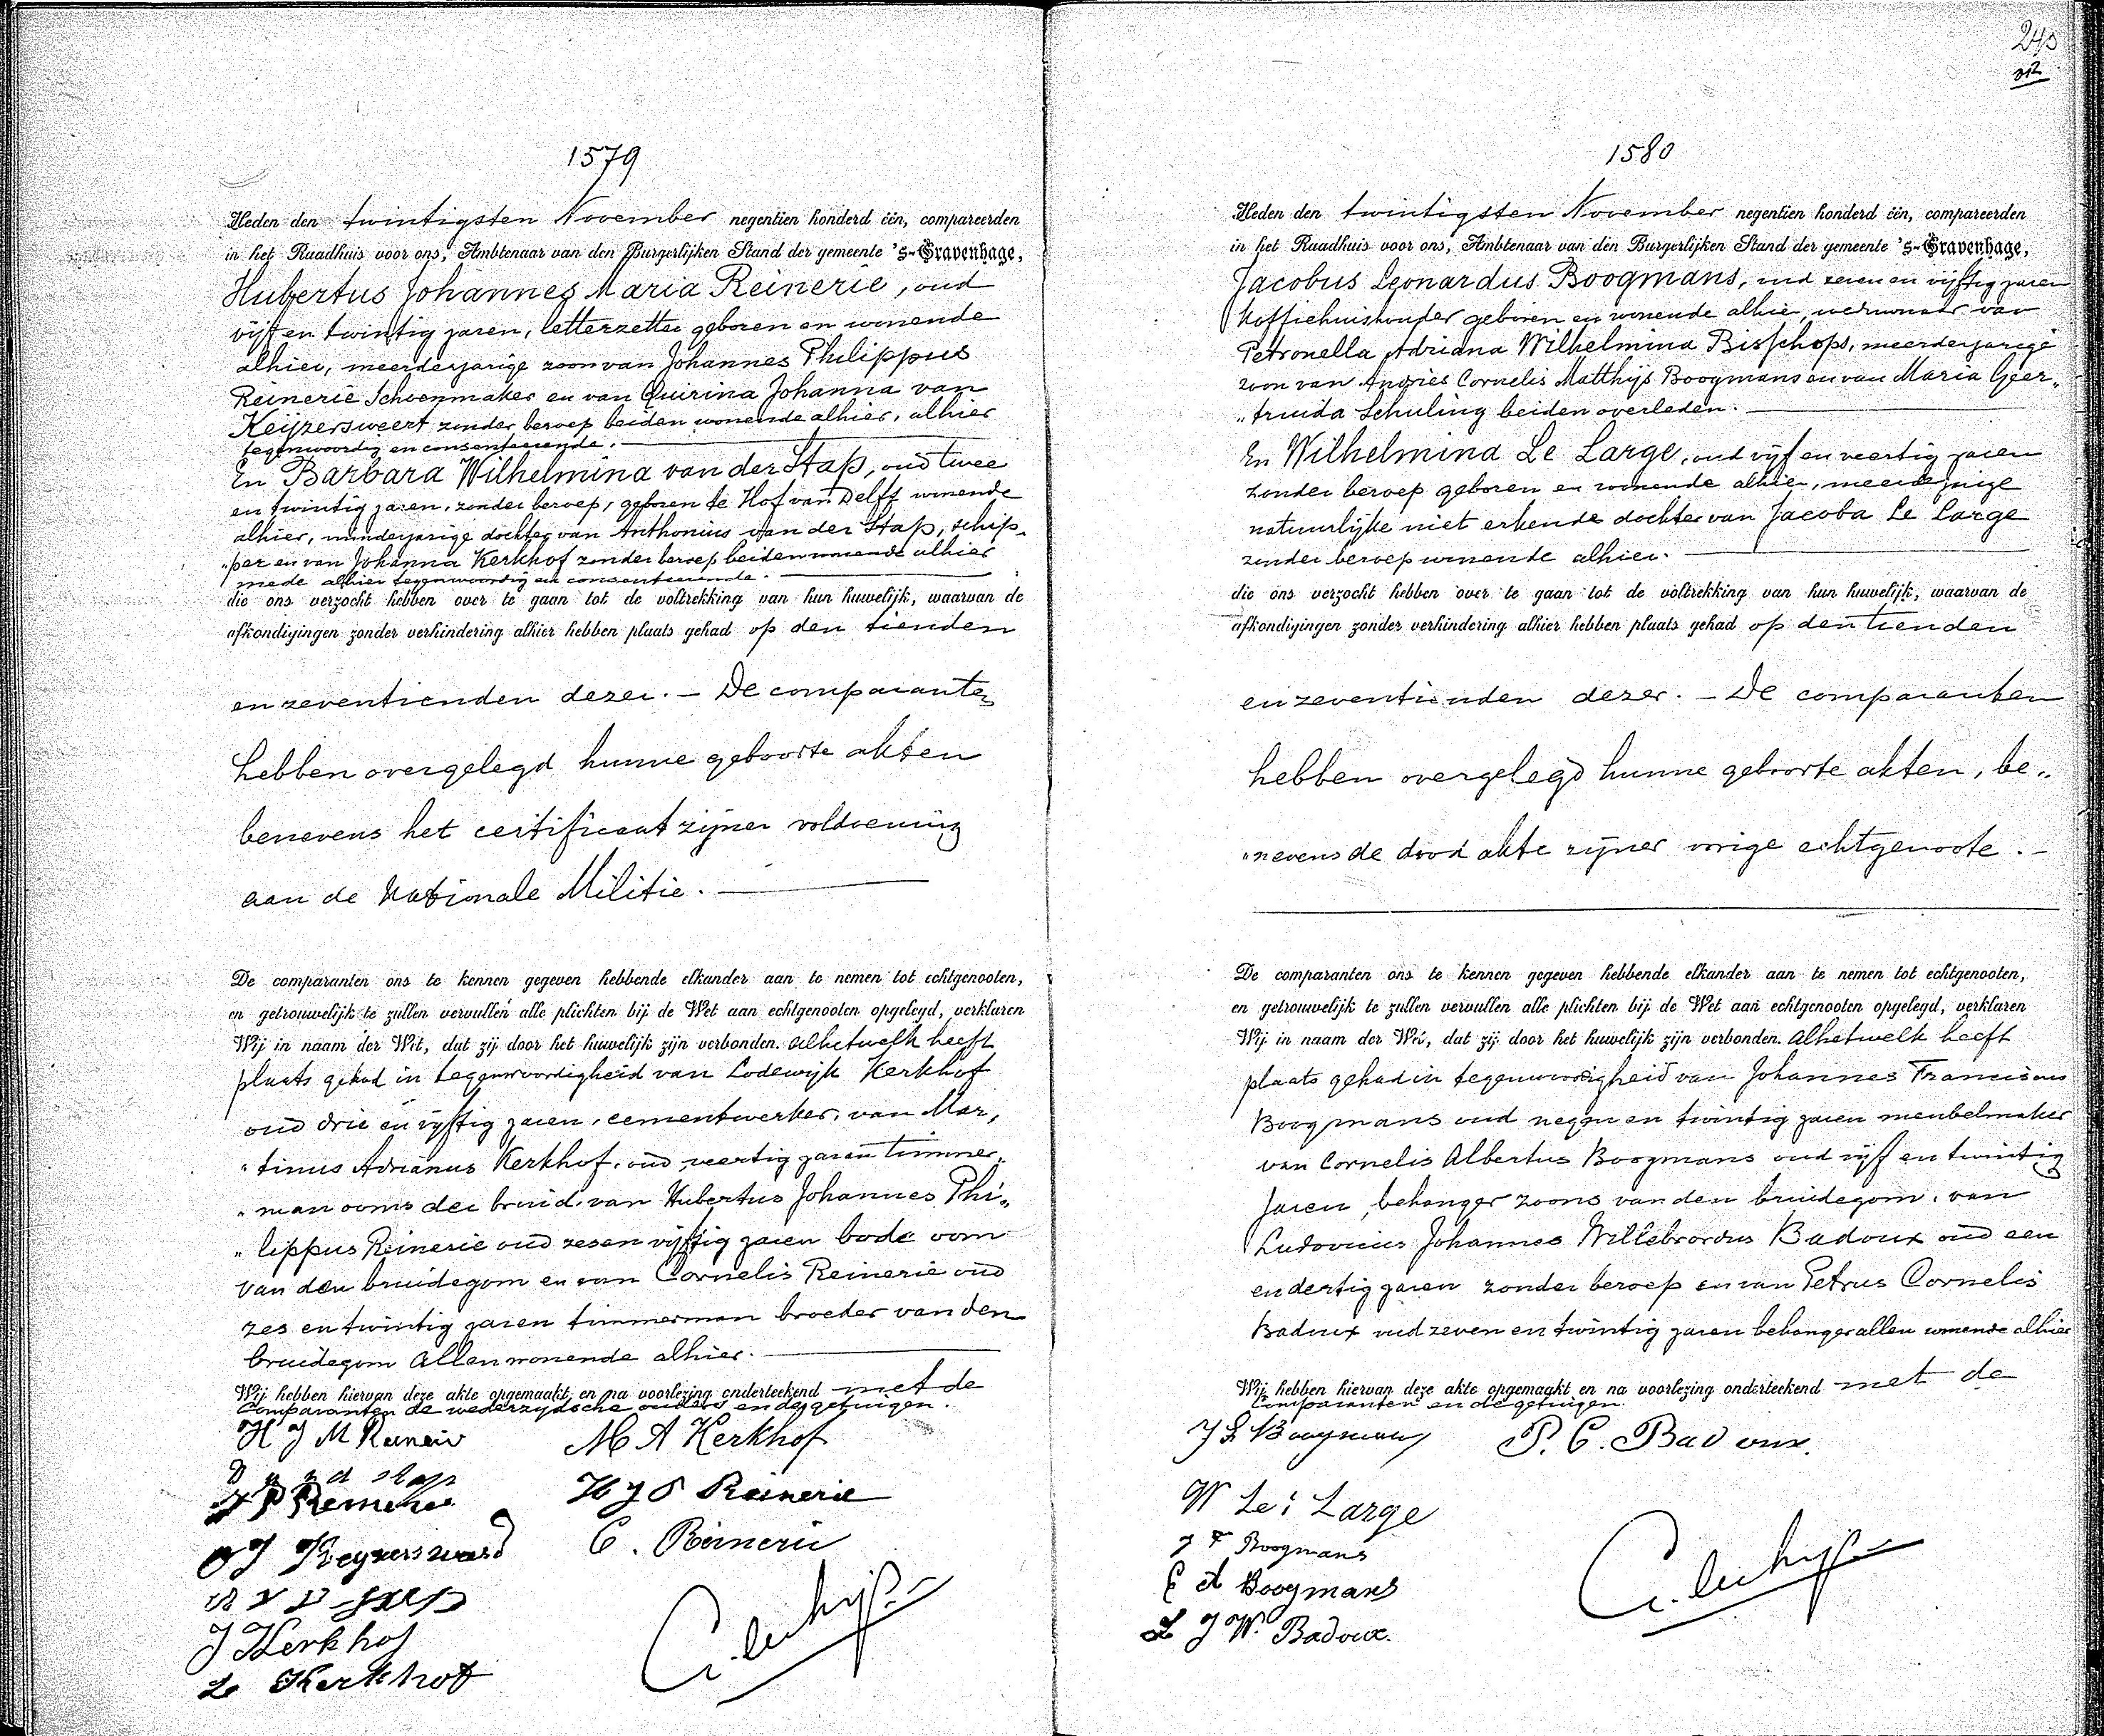 1579
Heden den twintigsten November negentien honderd één, compareerden
in het Raadhuis voor ons, Ambtenaar van den Burgerlijken Stand der gemeente 's-Gravenhage,
Hubertus Johannes Maria Reinerie, oud
vijf en twintig jaren, letterzetter geboren en wonende
alhier, meerderjarige zoon van Johannes Philippus
Reinerie Schoenmaker en van Quirina Johanna van
Keijzersweert zonder beroep beiden wonende alhier, alhier
tegenwoordig en consenteerende.
En Barbara Wilhelmina van der Stap, oud twee
en twintig jaren, zonder beroep, geboren te Hof van Delft wonende
alhier, minderjarige dochter van Anthonius van der Stap, schip„
„per en van Johanna Kerkhof zonder beroep beiden wonende alhier
mede alhier tegenwoordig en consenteerende.
die ons verzocht hebben over te gaan tot de voltrekking van hun huwelijk, waarvan de
afkondigingen zonder verhindering alhier hebben plaats gehad op den tienden
en zeventienden dezer. — De comparanten
hebben overgelegd hunne geboorte akten
benevens het certificaat zijner voldoening
aan de Nationale Militie.
De comparanten ons te kennen gegeven hebbende elkander aan te nemen tot echtgenooten,
en getrouwelijk te zullen vervullen alle plichten bij de Wet aan echtgenooten opgelegd, verklaren
Wij in naam der Wet, dat zij door het huwelijk zijn verbonden. Alhetwelk heeft
plaats gehad in tegenwoordigheid van Lodewijk Kerkhof
oud drie en vijftig jaren, cementwerker, van Mar„
„tinus Adrianus Kerkhof, oud veertig jaren timmer„
„man ooms der bruid, van Hubertus Johannes Phi„
„lippus Reinerie oud zes en vijftig jaren bode oom
van den bruidegom en van Cornelis Reinerie oud
zes en twintig jaren timmerman broeder van den
bruidegom allen wonende alhier.
Wij hebben hiervan deze akte opgemaakt en na voorlezing onderteekend met de
Comparanten de wederzydsche ouders en de getuigen.
H J M Reinerie
M A Kerkhof
B W v d Stap
J P Reinerie
H J P Reinerie
Q J Keyzersward
C. Reinerie
A v d Stap
J Kerkhof
L Kerkhof
243
312
1580
Heden den twintigsten November negentien honderd één, compareerden
in het Raadhuis voor ons, Ambtenaar van den Burgerlijken Stand der gemeente 's-Gravenhage,
Jacobus Leonardus Boogmans, oud zeven en vijftig jaren
Koffiehuishouder geboren en wonende alhier, weduwnaar van
Petronella Adriana Wilhelmina Bisschops, meerderjarige
zoon van Andries Cornelis Matthijs Boogmans en van Maria Geer„
„truida Schuling beiden overleden.
En Wilhelmina Le Large, oud vijf en veertig jaren
zonder beroep geboren en wonende alhier, meerderjarige
natuurlijke niet erkende dochter van Jacoba Le Large
zonder beroep wonende alhier.
die ons verzocht hebben over te gaan tot de voltrekking van hun huwelijk, waarvan de
afkondigingen zonder verhindering alhier hebben plaats gehad op den tienden
en zeventienden dezer. — De comparanten
hebben overgelegd hunne geboorte akten, be„
„nevens de dood akte zijner vorige echtgenoote. —
De comparanten ons te kennen gegeven hebbende elkander aan te nemen tot echtgenooten,
en getrouwelijk te zullen vervullen alle plichten bij de Wet aan echtgenooten opgelegd, verklaren
Wij in naam der Wet, dat zij door het huwelijk zijn verbonden. Alhetwelk heeft
plaats gehad in tegenwoordigheid van Johannes Franciscus
Boogmans oud negen en twintig jaren meubelmaker
van Cornelis Albertus Boogmans oud vijf en twintig
Jaren, behanger zoons van den bruidegom, van
Ludovicus Johannes Willebrordus Badoux oud een
en dertig jaren zonder beroep en van Petrus Cornelis
Badoux oud zeven en twintig jaren behanger allen wonende alhier
Wij hebben hiervan deze akte opgemaakt en na voorlezing onderteekend met de
Comparanten en de getuigen.
J L Boogmans
P. C. Badoux.
W Le Large
J F Boogmans
C A Boogmans
L J W. Badoux.